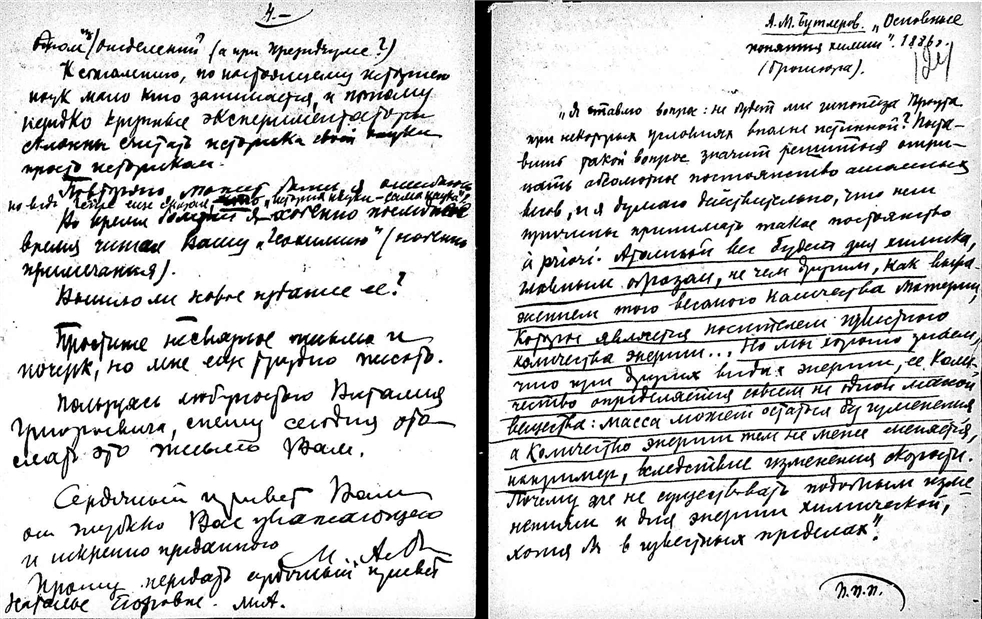 4.—
отделений (а при Президиуме?)
К сожалению, по настоящему историей
наук мало кто занимается, и потому
нередко крупные экспериментаторы
склонны считать историка своей науки
просто историком.
Повторяю, может быть, я ошибаюсь
но ведь Герье еще сказал, что "история науки – сама наука".
Во время болезни я особенно
время читал Вашу "Геохимию" (особенно
примечания).
Вышло ли новое издание ее?
Простите несвязное письмо и
почерк, но мне еще трудно писать.
Пользуясь любезностью Виталия
Григорьевича, спешу сегодня ото-
слать это письмо Вам.
Сердечный привет Вам
от глубоко Вас уважающего
и искренно преданного
М. А.
Прошу передать сердечный привет
Наталье Егоровне. М.А.
А.М. Бутлеров. „Основные
понятия химии". 1886 г.
(Брошюра).
„Я ставлю вопрос: не будет ли гипотеза Проута
при некоторых условиях вполне истинной? Поста-
вить такой вопрос значит решиться отри-
цать абсолютное постоянство атомных
весов, и я думаю действительно, что нет
причины принимать такое постоянство
à priori. Атомный вес будет для химика,
главным образом, не чем другим, как выра-
жением того весомого количества материи,
которое является носителем известного
количества энергии... Но мы хорошо знаем,
что при других видах энергии, ее коли-
чество определяется совсем не одной массой
вещества: масса может остаться без изменения
а количество энергии тем не менее меняется,
например, вследствие изменения скорости.
Почему же не существовать подобным изме-
нениям и для энергии химической,
хотя бы в известных пределах?"
П.П.П.